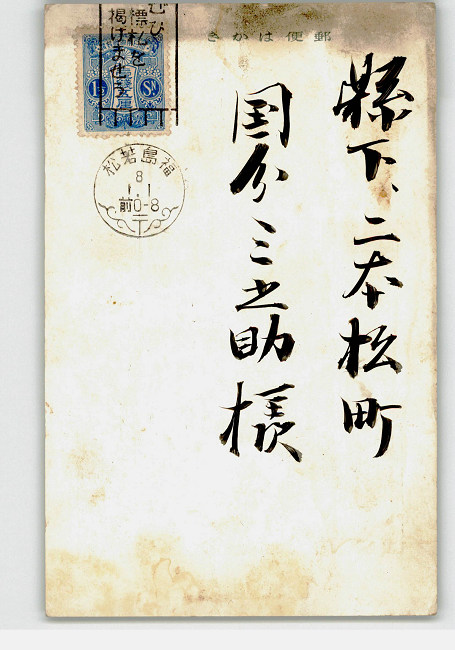 郵便はかき
縣下、二本松町
国分三之助様
ぜひ
標札を
掲げませう
1½ Sn
福島若松
8
1.1
前0-8